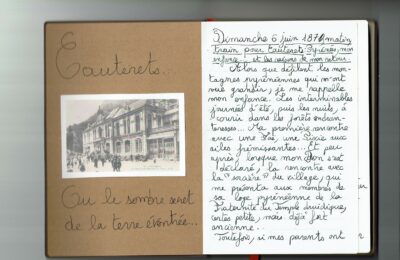 Cauterets...
Ou le sombre secret
de la terre éventrée...
Dimanche 6 juin 1871, matin,
Train pour Cauterets. Pyrénées, mon
enfance et les raisons de mon retour.
Alors que défilent les mon-
tagnes pyrénéennes qui m'ont
vue grandir, je me rappelle
mon enfance. Les interminables
journées d'été, puis les nuits, à
courir dans les forêts enchan-
teresses... Ma première rencontre
avec une Fée, une Pixie aux
ailes frémissantes... Et peu
après, lorsque mon Don s'est
déclaré, la rencontre avec
la "sorcière" du village, qui
me présenta aux membres de
sa loge pyrénéenne de la
Fraternité du Temple druidique,
certes petite, mais déjà fort
ancienne.
Toutefois, si mes parents ont